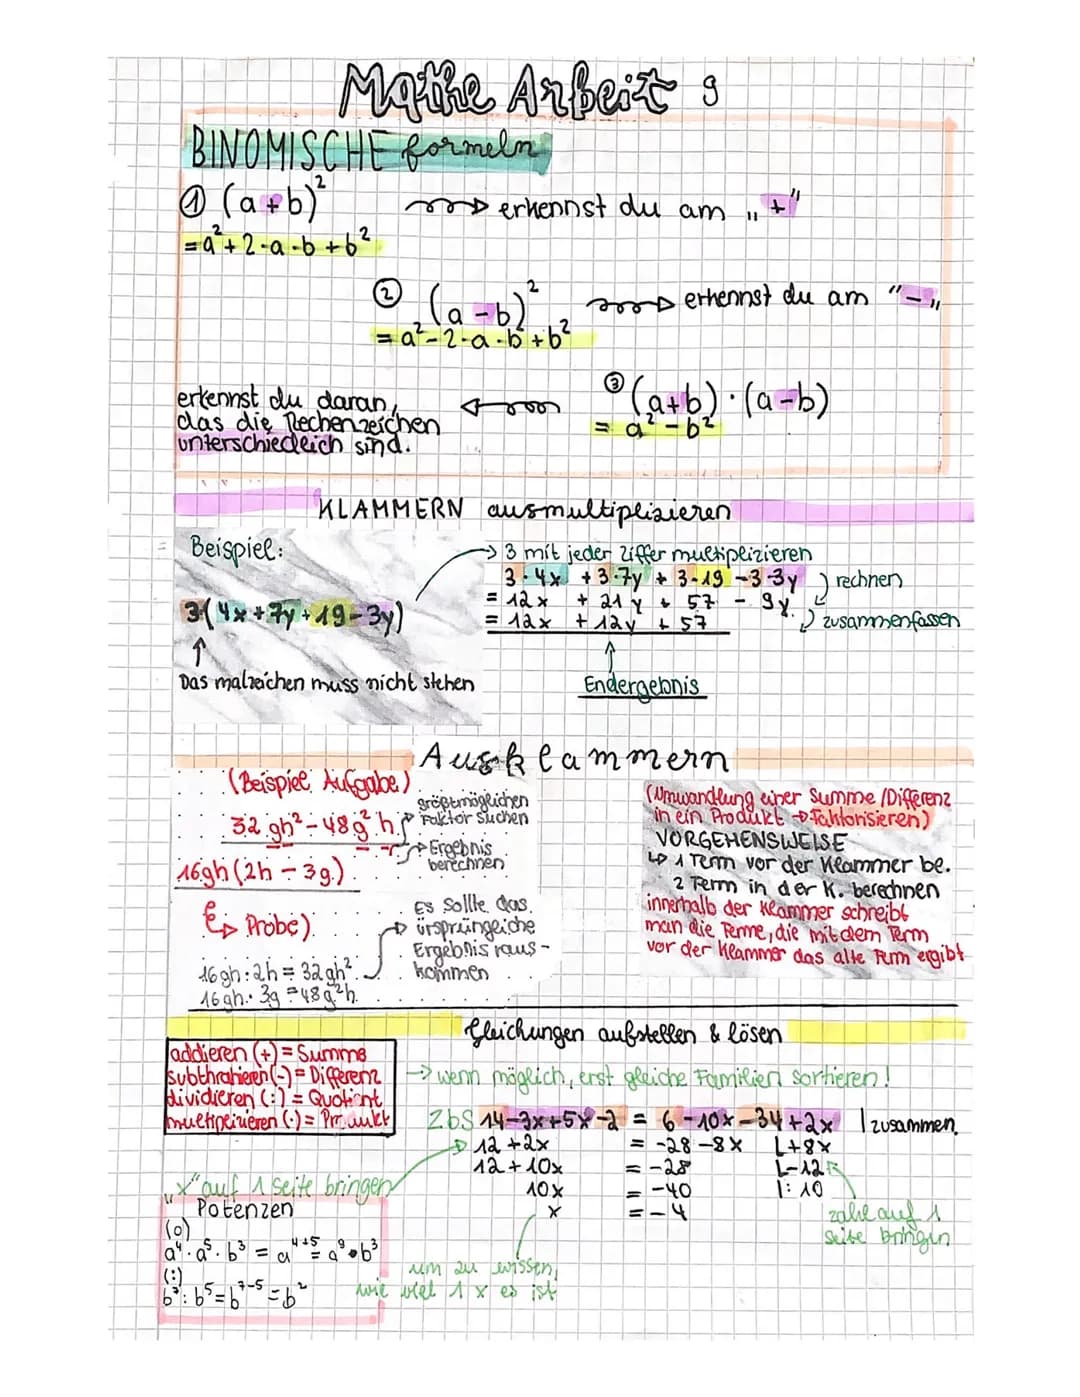 Mathe Arbeit 9
BINOMISCHE formeln
① (a+b)² erkennst du am „+"
=a²+2·a·b+b²
② (a-b)² erkennst du am "-„
=a²-2·a·b+b²
③ (a+b)·(a-b)
= a²-b²
erkennst du daran,
das die Rechenzeichen
unterschiedleich sind.
KLAMMERN ausmultiplizieren
Beispiel:
3(4x+7y+19-3y)
Das malzeichen muss nicht stehen
3 mit jeder Ziffer multiplizieren
3·4x +3·7y + 3·19 -3·3y rechnen
= 12x + 21y + 57 - 9y.
= 12x + 12y + 57 zusammenfassen
Endergebnis
Ausklammern
(Beispiel Aufgabe)
32gh²-48g²h
größtmöglichen
Faktor suchen
Ergebnis
berechnen
16gh(2h-3g)
Probe)
16gh·2h=32gh²
16gh·3g=48g²h
Es sollte das
ursprüngleiche
Ergebnis raus-
kommen
(Umwandlung einer Summe/Differenz
in ein Produkt → Faktorisieren)
VORGEHENSWEISE
↳ 1 Term vor der Klammer be.
2 Term in der K. berechnen
innerhalb der Klammer schreibt
man die Terme, die mit dem Term
vor der Klammer das alte Term ergibt
Gleichungen aufstellen & lösen
addieren (+) = Summe
subthrahieren (-) = Differenz
dividieren (:) = Quotient
multiplizieren (·) = Produkt
→ wenn möglich, erst gleiche Familien sortieren!
ZbS 14-3x+5x-2 = 6-10x-34+2x | zusammen.
12+2x = -28-8x |+8x
12+10x = -28 |-12
10x = -40 |:10
x = -4
„x" auf 1 Seite bringen
zahl auf 1
Seite bringen
um zu wissen,
wie viel 1 x es ist
Potenzen
(·)
a⁴·a⁵·b³ = a⁴⁺⁵ = a⁹·b³
(:)
b⁷:b⁵=b⁷⁻⁵=b²